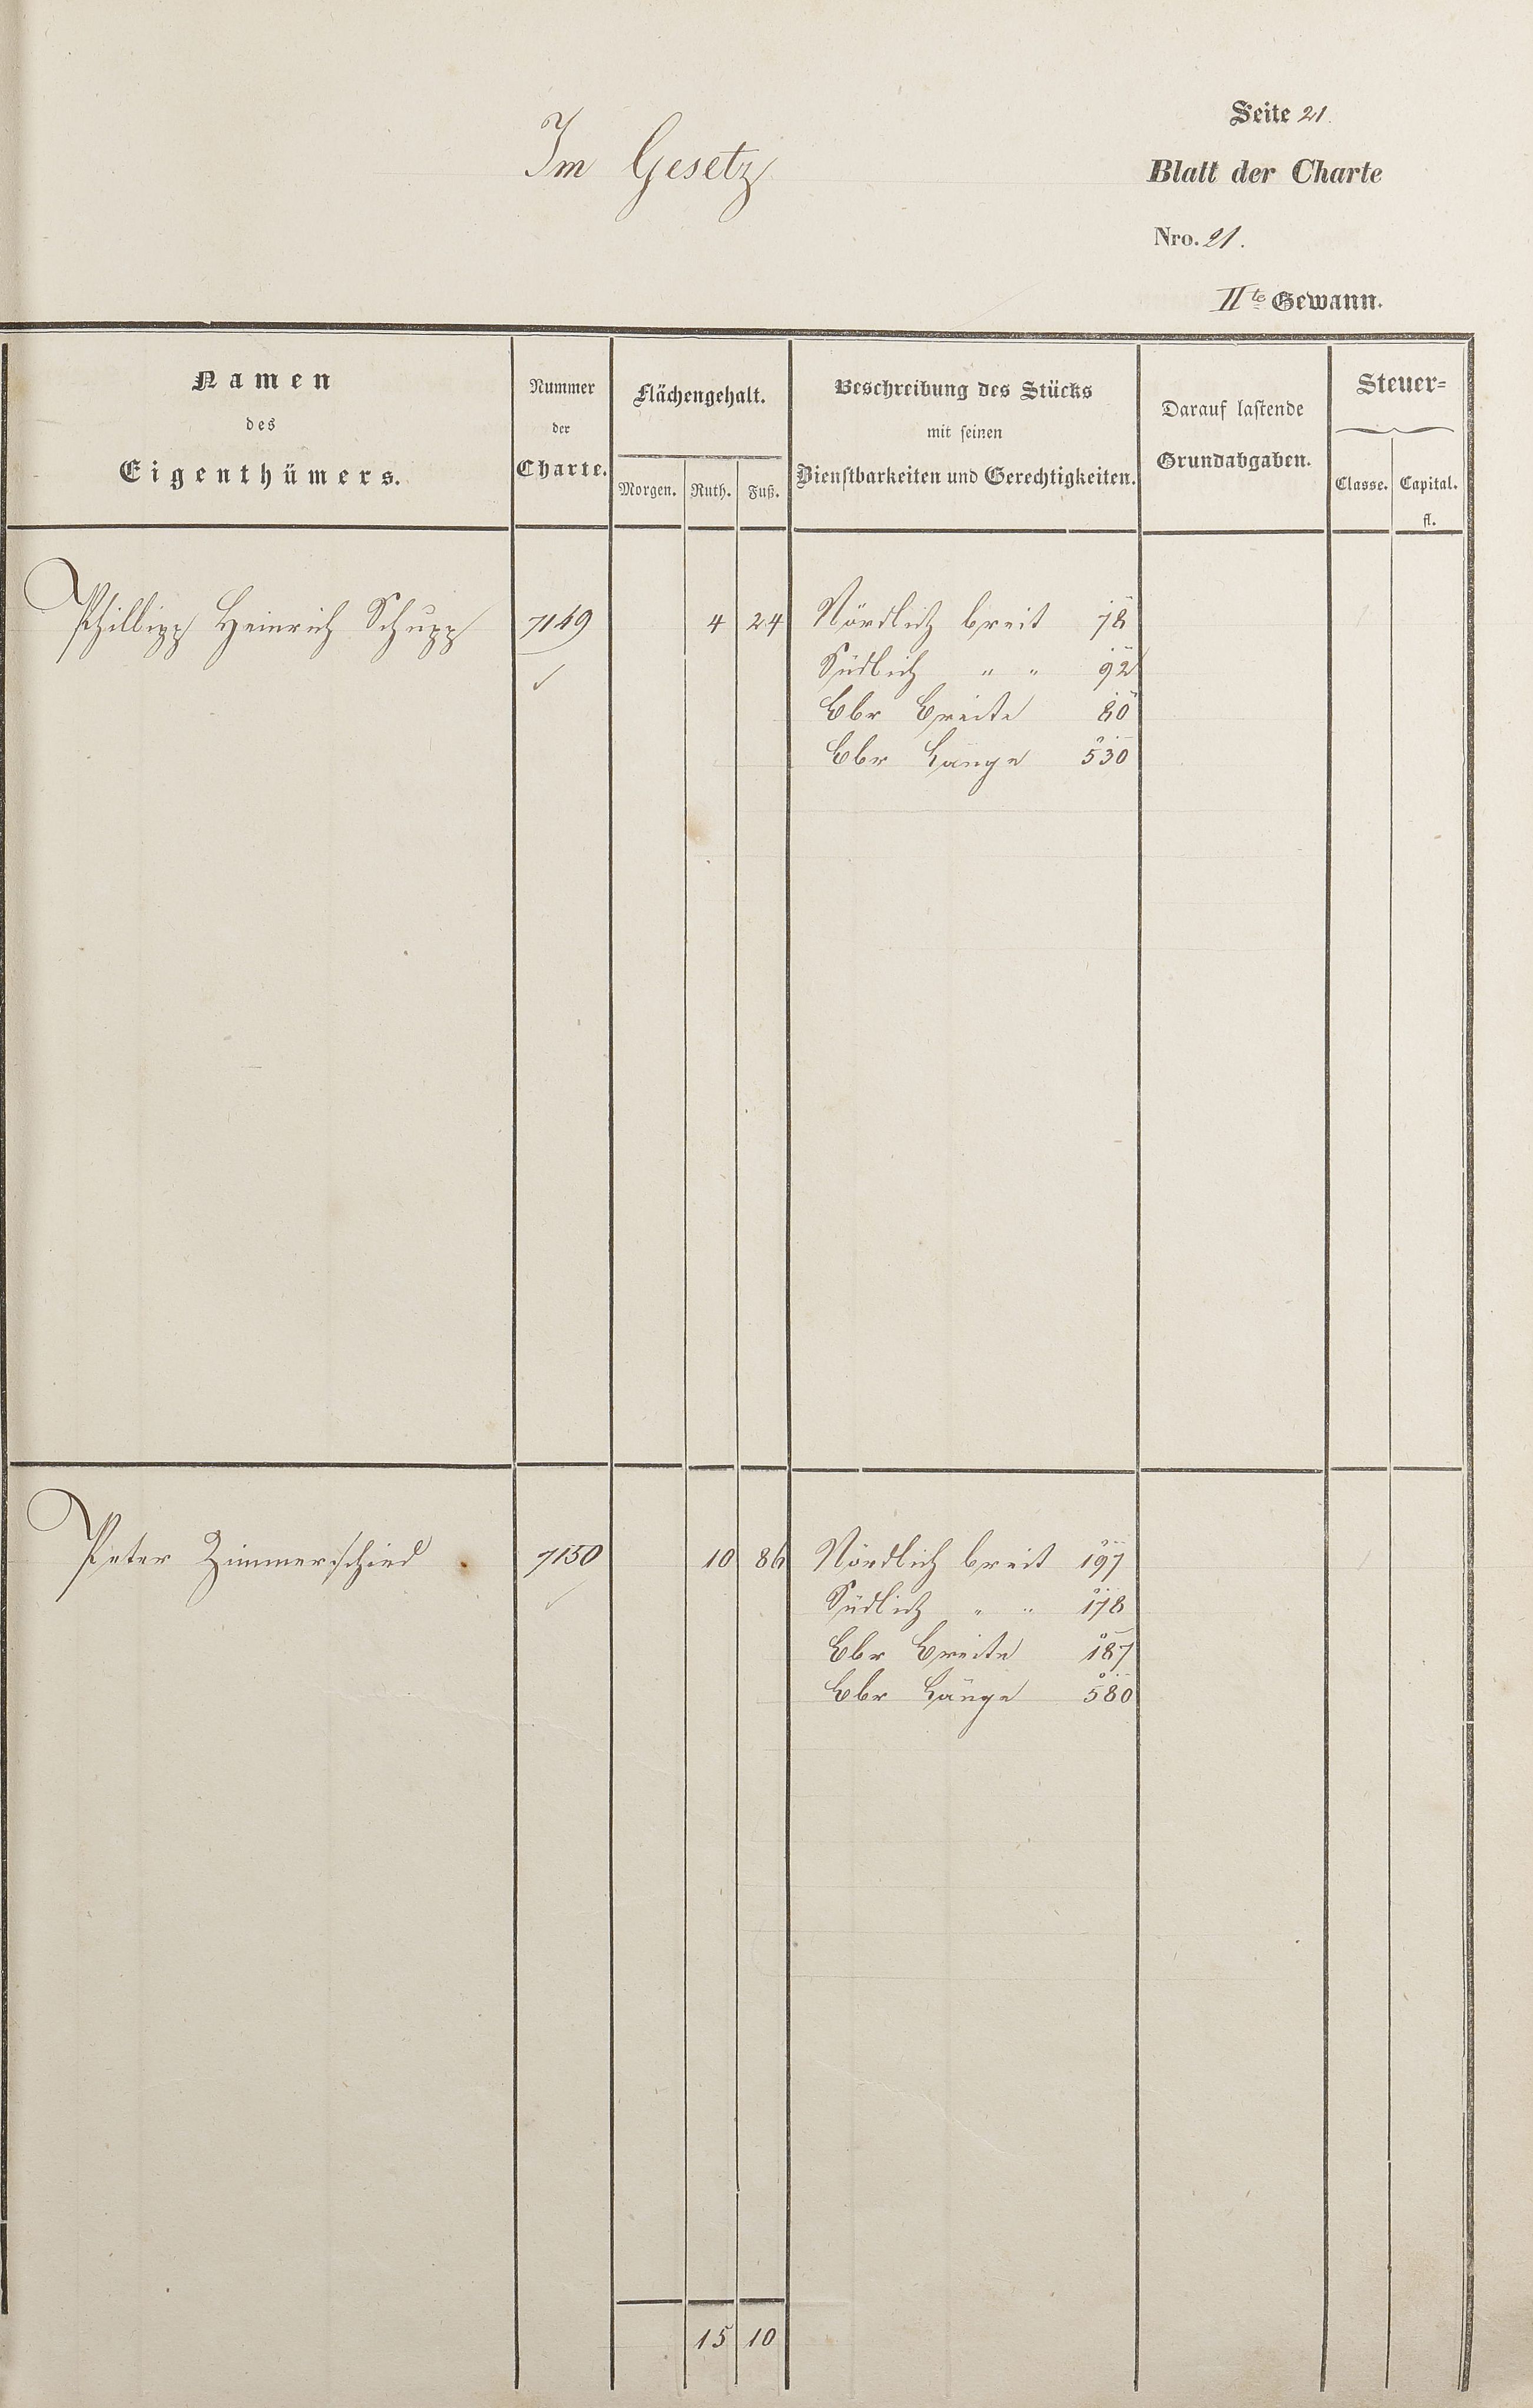 Im Gesetz
Seite 21.
Blatt der Charte
Nro. 21.
IIte Gewann.
Namen
des
Eigenthümers.
Nummer
der
Charte.
Flächengehalt.
Morgen. Ruth. Fuß.
Beschreibung des Stücks
mit seinen
Dienstbarkeiten und Gerechtigkeiten.
Darauf lastende
Grundabgaben.
Steuer=
Classe. Capital.
fl.
Phillipp Heinrich Schupp 7149 4 24 Nördlich breit 78
Südlich " " 92
Ebr Breite 80
Ebr Länge 530
Peter Zimmerschied 7150 10 86 Nördlich breit 197
Südlich " " 178
Ebr Breite 187
Ebr Länge 580
15 10